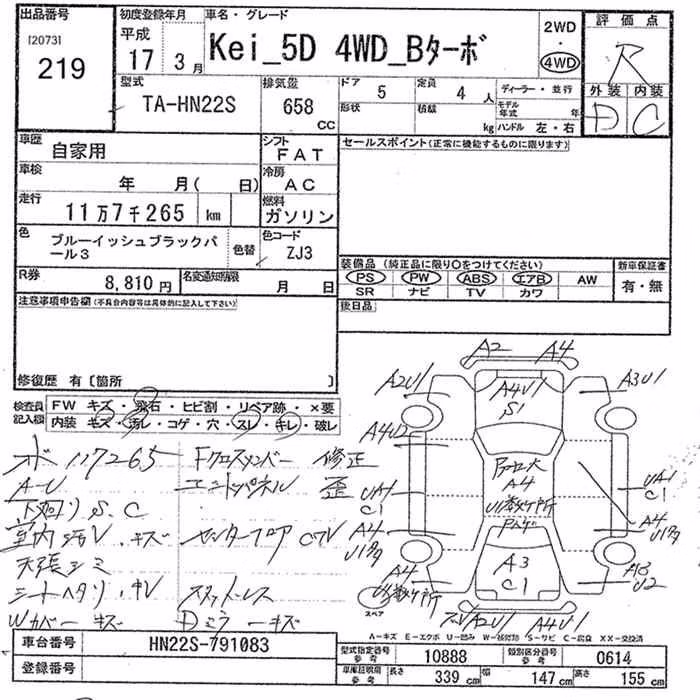 出品番号
[2073]
219
初度登録年月
平成
17 3月
車名・グレード
Kei_5D 4WD_Bターボ
2WD
・
4WD
評価点
R
外装 内装
D C
型式
TA-HN22S
排気量
658
CC
ドア 5
形状
定員 4 人
積載 kg
ディーラー・並行
モデル年式 年
ハンドル 左・右
車歴
自家用
シフト
FAT
セールスポイント(正常に機能するものに限ります)
車検
年 月( 日)
冷房
AC
走行
11万7千265 km
燃料
ガソリン
色
ブルーイッシュブラックパール3
色替
色コード
ZJ3
装備品 (純正品に限り○をつけてください)
PS PW ABS エアB AW
SR ナビ TV カワ
新車保証書
有・無
R券
8,810円
名変通知期限
月 日
後日品
注意事項申告欄(不具合内容等は具体的に記入して下さい)
修復歴 有〔箇所 〕
検査員記入欄
FW キズ・飛石・ヒビ割・リペア跡・×要
内装 キズ・汚レ・コゲ・穴・スレ・キレ・破レ
117265 Fクロスメンバー 修正
A-U エンドパネル 歪
下廻り S.C
室内 汚V.キズ センターフロア
天張シミ
シートヘタリ スタッドレス
Wカバーキズ Dミラーキズ
A2 A4
A2U1 A4U1 A3U1
S1
A4U2
A4
UA1
C1
A4
A4
A3
C1
A4
U2
スペア
A2U1 A4U1
A-キズ E-エクボ U-凹み W-補修跡 S-サビ C-腐食 XX-交換済
車台番号 HN22S-791083
登録番号
型式指定番号 参考 10888 類別区分番号 参考 0614
車庫証明用 参考 長さ 339 cm 幅 147 cm 高さ 155 cm